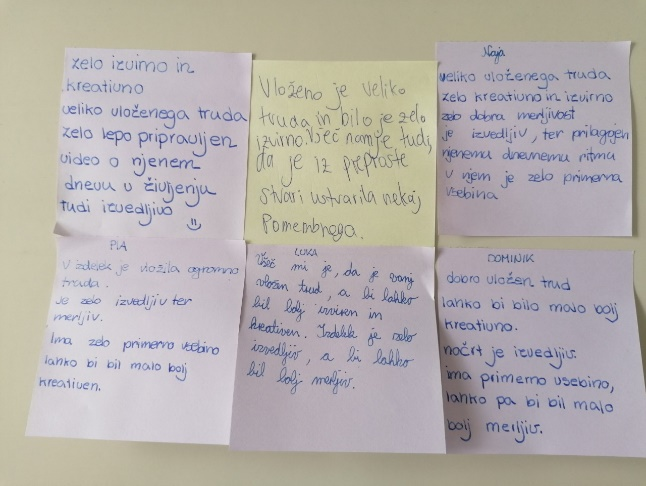 zelo izvirno in
kreativno
veliko vloženega truda
zelo lepo pripravljen
video o njenem
dnevu v življenju
tudi izvedljivo
Vloženo je veliko
truda in bilo je zelo
izvirno. Všeč nam je tudi,
da je iz preproste
stvari ustvarila nekaj
Pomembnega.
Naja
veliko vloženega truda
zelo kreativno in izvirno
zelo dobra merljivost
je izvedljiv, ter prilagojen
njenemu dnevnemu ritmu
v njem je zelo primerna
vsebina
PIA
V izdelek je vložila ogromno
truda.
Je zelo izvedljiv ter
merljiv.
Ima zelo primerno vsebino
lahko bi bil malo bolj
kreativen.
LUKA
Všeč mi je, da je vanj
vložen trud, a bi lahko
bil bolj izviren in
kreativen. Izdelek je zelo
izvedljiv, a bi lahko
bil bolj merljiv.
DOMINIK
dobro vložen trud
lahko bi bilo malo bolj
kreativno.
načrt je izvedljiv.
ima primerno vsebino,
lahko pa bi bil malo
bolj merljiv.